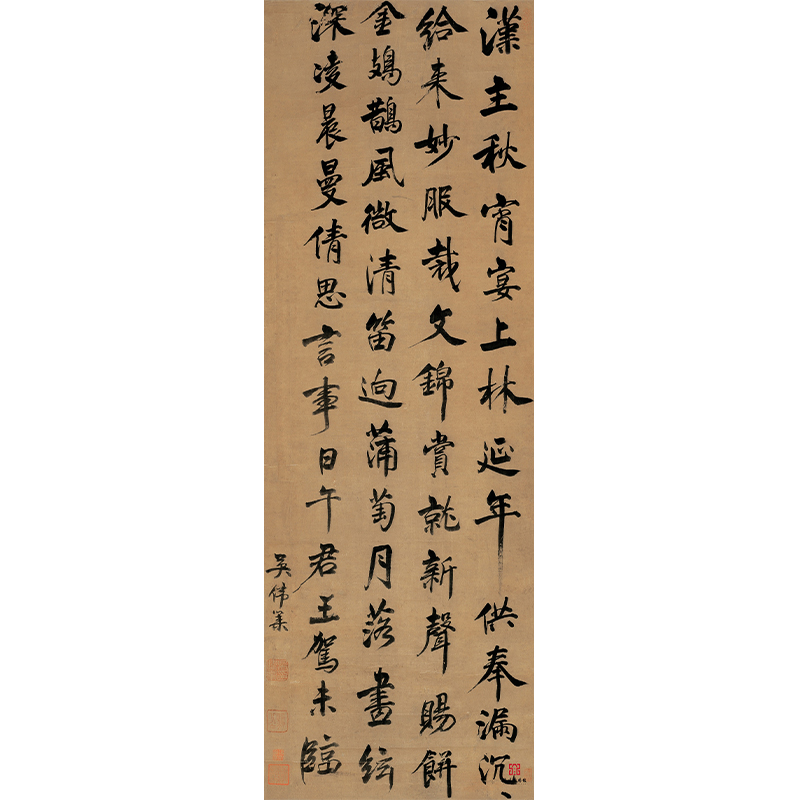 漢主秋宵宴上林延年供奉漏沉〻
給来妙服裁文錦賞就新聲賜餅
金鳷鵲風微清笛逈蒲萄月落畫絃
深凌晨曼倩思言事日午君王駕未臨
吳偉業